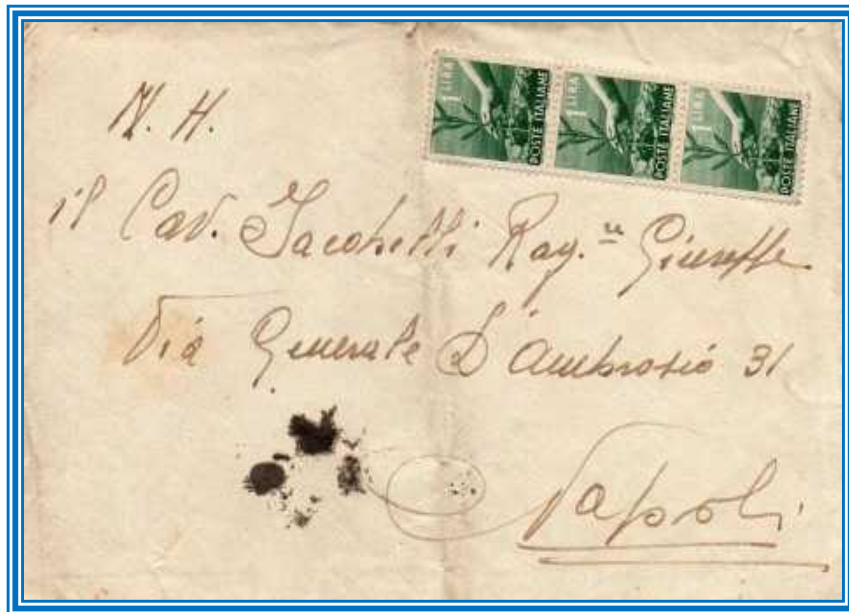 1 LIRA POSTE ITALIANE
1 LIRA POSTE ITALIANE
1 LIRA POSTE ITALIANE
N. H.
il Cav. Rag.re Giuseppe
Via Generale D'Ambrosio 31
Napoli